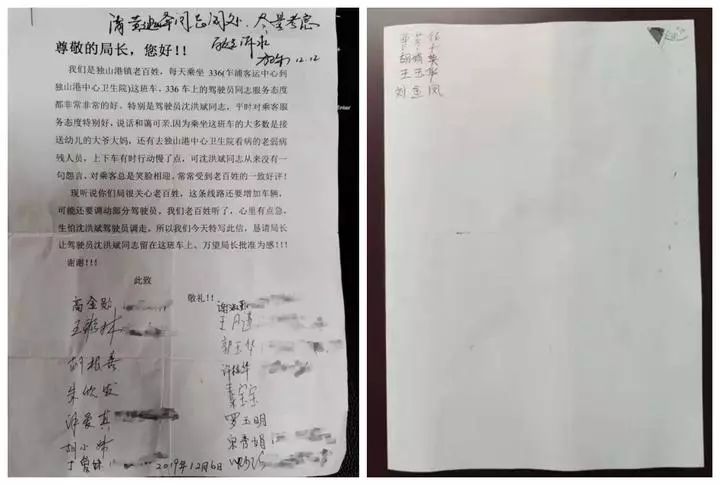 尊敬的局长，您好!!
12.12
我们是独山港镇老百姓，每天乘坐 336(车浦客运中心到
独山港中心卫生院)这班车，336 车上的驾驶员同志服务态度
都非常非常的好。特别是驾驶员沈洪斌同志，平时对乘客服
务态度特别好，说话和蔼可亲.因为乘坐这班车的大多数是接
送幼儿的大爷大妈，还有去独山港中心卫生院看病的老弱病
残人员，上下车有时行动慢了点，可沈洪斌同志从来没有一
句怨言，对乘客总是笑脸相迎，常常受到老百姓的一致好评!
现听说你们局很关心老百姓，这条线路还要增加车辆，
可能还要调动部分驾驶员，我们老百姓听了，心里有点急，
生怕沈洪斌驾驶员调走。所以我们今天特写此信，恳请局长
让驾驶员沈洪斌同志留在这班车上、万望局长批准为感!!!
谢谢!!!
此致
敬礼!!
高金
王月
胡根善
郭玉华
朱欣发
许桂华
许爱英
罗玉明
胡小
2019年12月6日
胡
王玉
刘金凤
Enter